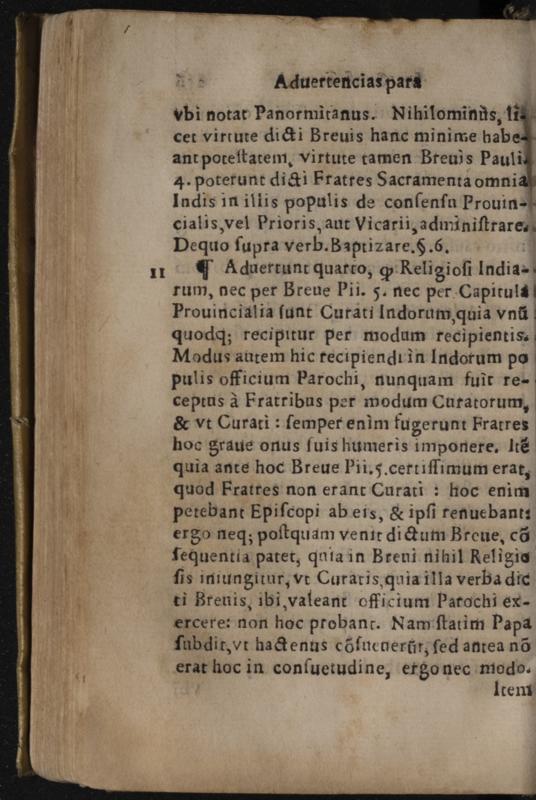 Aduertencias para
vbi notat Panormitanus. Nihilominùs, li-
cet virtute dicti Breuis hanc minime habe-
ant potestatem, virtute tamen Breuis Pauli.
4. poterunt dicti Fratres Sacramenta omnia
Indis in illis populis de consensu Prouin-
cialis, vel Prioris, aut Vicarii, administrare.
De quo supra verb. Baptizare. §. 6.
11 ¶ Aduertunt quarto, ꝙ Religiosi India-
rum, nec per Breue Pii. 5. nec per Capitula
Prouincialia sunt Curati Indorum, quia vnũ
quodq; recipitur per modum recipientis.
Modus autem hic recipiendi in Indorum po
pulis officium Parochi, nunquam fuit re-
ceptus à Fratribus per modum Curatorum,
& vt Curati : semper enim fugerunt Fratres
hoc graue onus suis humeris imponere. Itẽ
quia ante hoc Breue Pii. 5. certissimum erat,
quod Fratres non erant Curati : hoc enim
petebant Episcopi ab eis, & ipsi renuebant:
ergo neq; postquam venit dictum Breue, cõ
sequentia patet, quia in Breui nihil Religio
sis iniungitur, vt Curatis, quia illa verba dic
ti Breuis, ibi, valeant officium Parochi ex-
ercere: non hoc probant. Nam statim Papa
subdit, vt hactenus cõsueuerũt, sed antea nõ
erat hoc in consuetudine, ergo nec modo.
Item